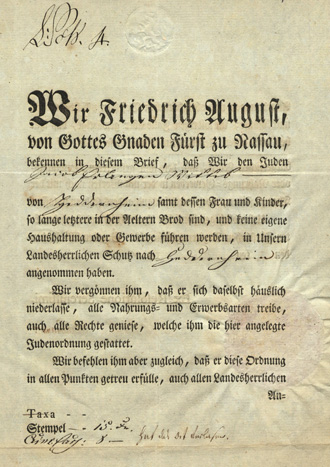 Wir Friedrich August,
von Gottes Gnaden Fürst zu Nassau,
bekennen in diesem Brief, daß Wir den Juden
von Heddernheim samt dessen Frau und Kinder,
so lange letztere in der Aeltern Brod sind, und keine eigene
Haushaltung oder Gewerbe führen werden, in Unsern
Landesherrlichen Schutz nach Heddernheim
angenommen haben.
Wir vergönnen ihm, daß er sich daselbst häuslich
niederlasse, alle Nahrungs- und Erwerbsarten treibe,
auch alle Rechte geniese, welche ihm die hier angelegte
Judenordnung gestattet.
Wir befehlen ihm aber zugleich, daß er diese Ordnung
in allen Punkten getreu erfülle, auch allen Landesherrlichen
An-
Taxa - -
Stempel - -